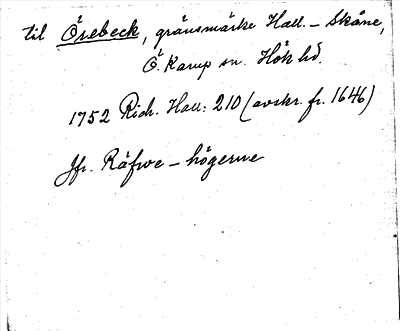 til Örebeck, gränsmärke Hall. – Skåne,
Ö. Karup sn. Hök hd.
1752 Rich. Hall: 210 (avskr. fr. 1646)
Jfr. Räfwe – högerne